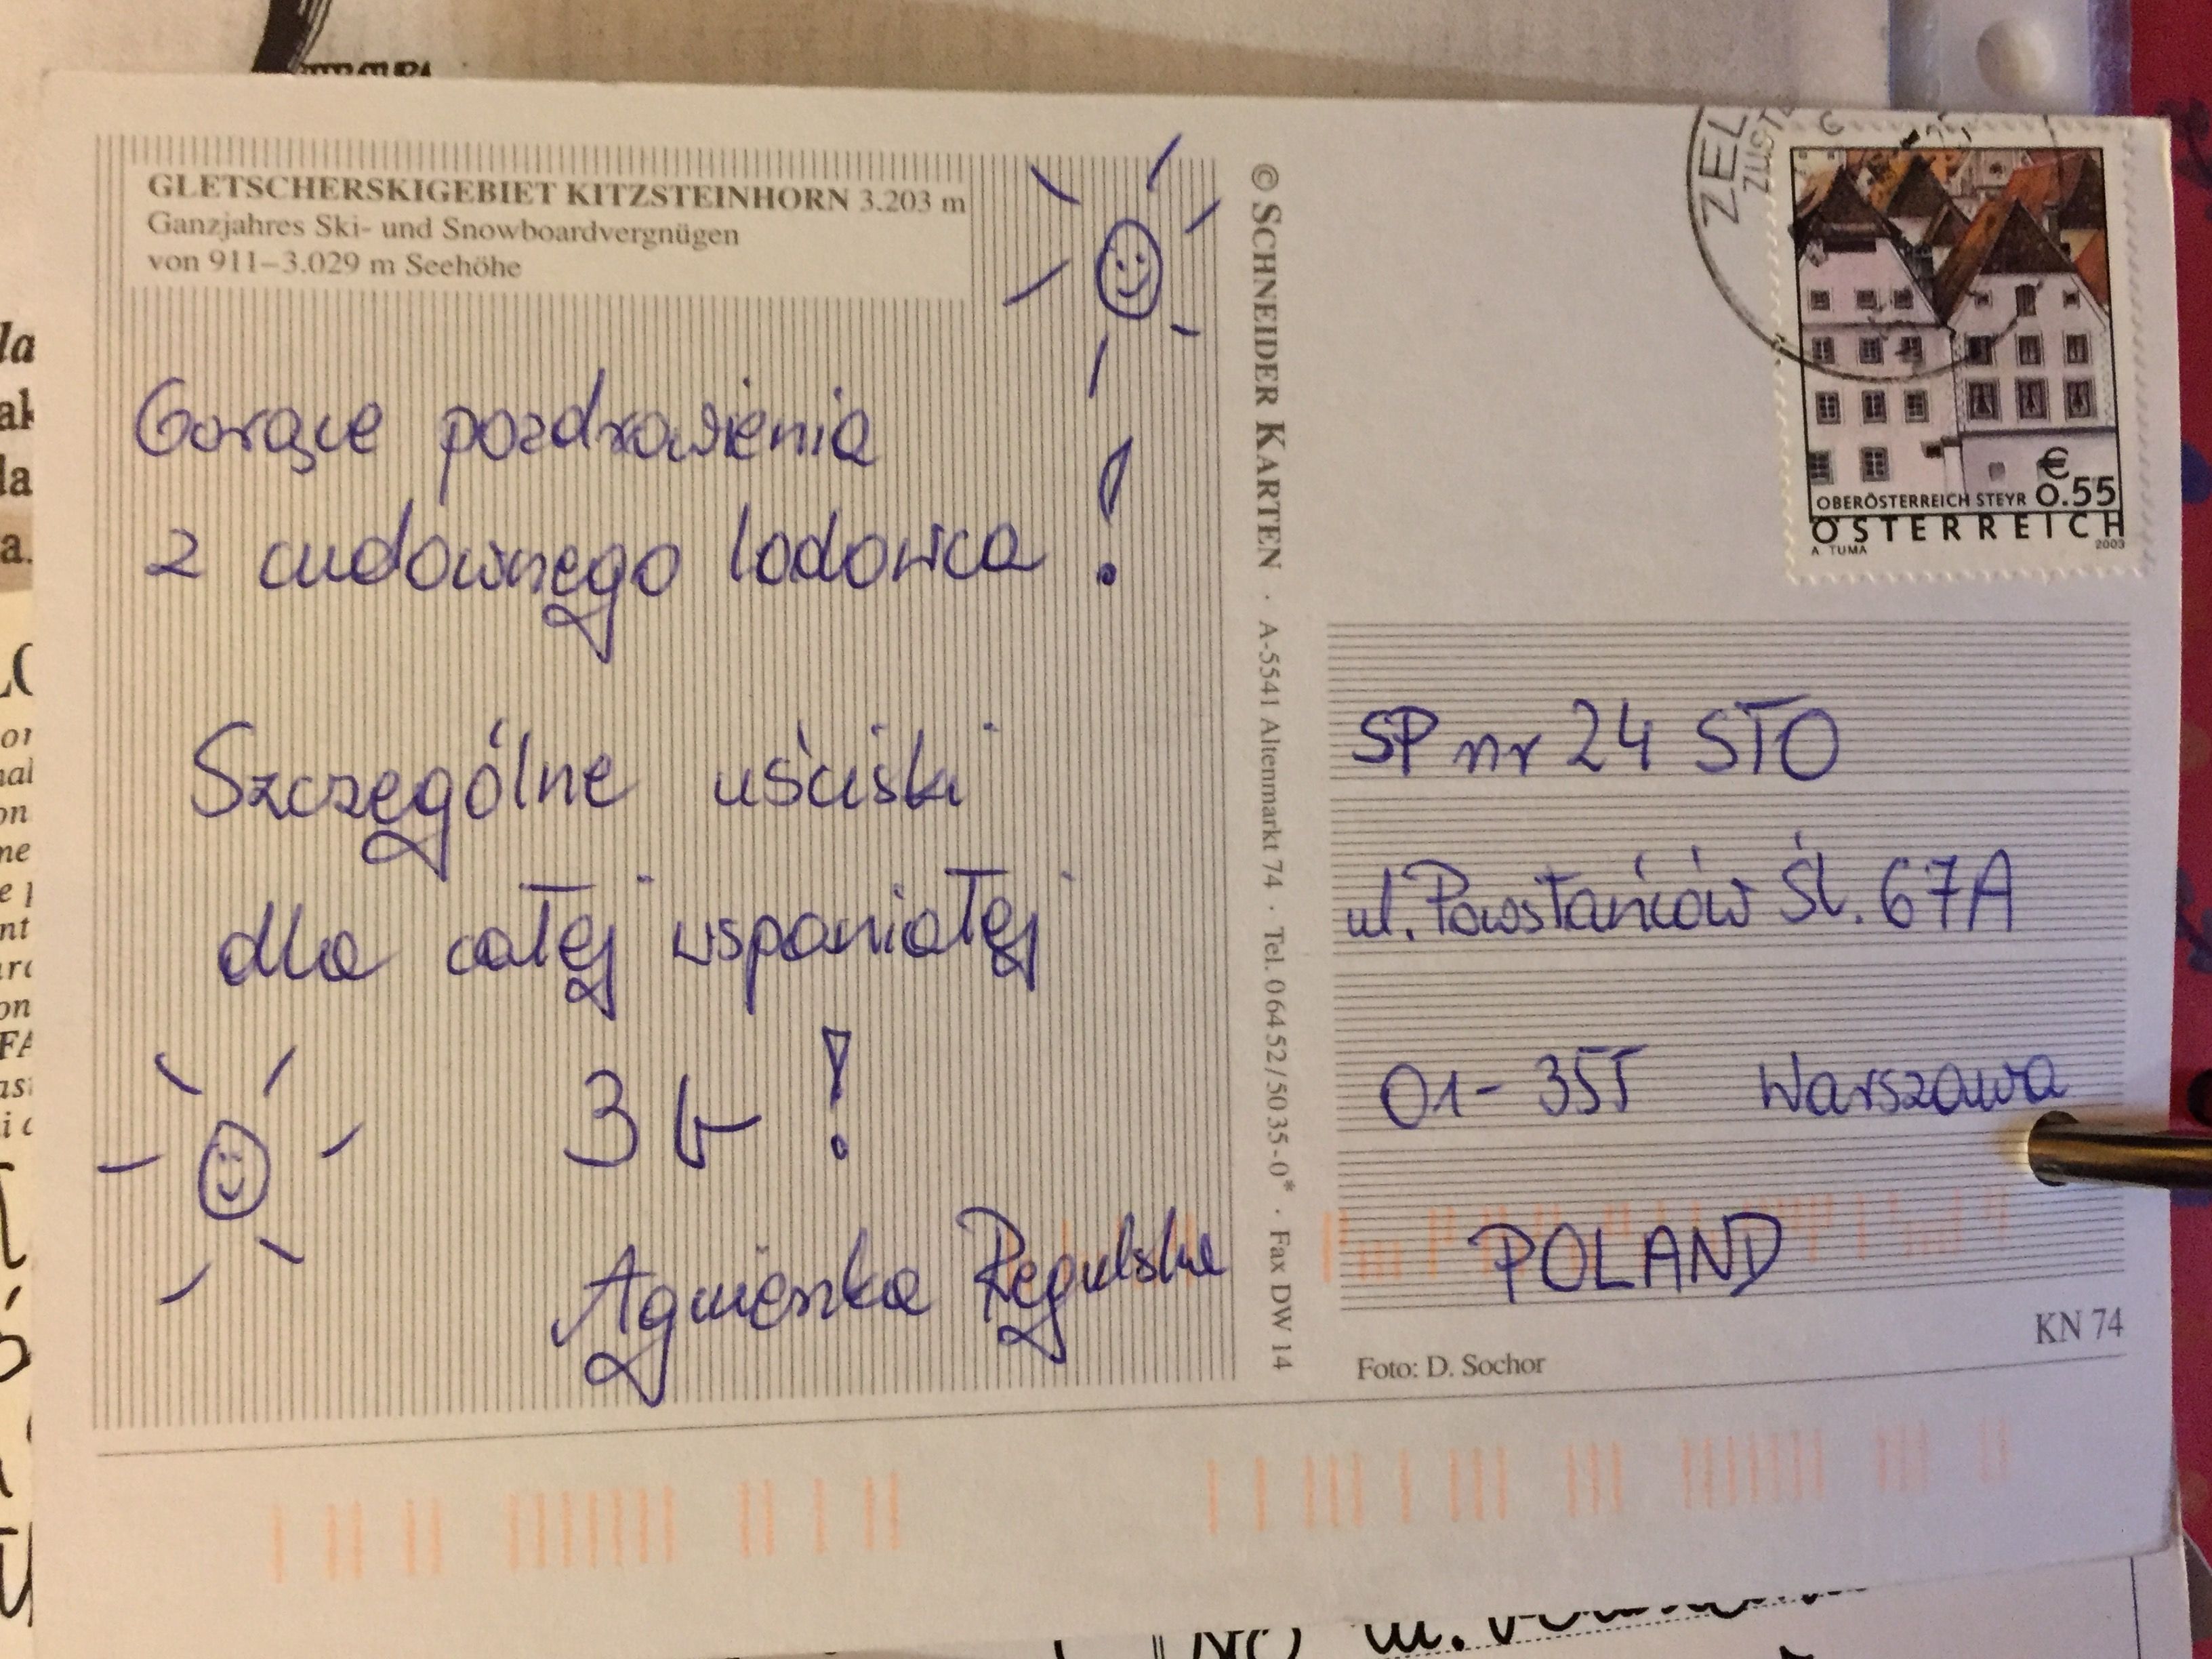 GLETSCHERSKIGEBIET KITZSTEINHORN 3.203 m
Ganzjahres Ski- und Snowboardvergnügen
von 911–3.029 m Seehöhe
Gorące pozdrowienia
z cudownego lodowca !
Szczególne uściski
dla całej wspaniałej
3 b !
Agnieszka Regulska
© SCHNEIDER KARTEN · A-5541 Altenmarkt 74 · Tel. 0 64 52 / 50 35-0* · Fax DW 14
ZEL
€
OBERÖSTERREICH STEYR 0.55
ÖSTERREICH
A. TUMA 2003
SP nr 24 STO
ul. Powstańców Śl. 67A
01-355 Warszawa
POLAND
KN 74
Foto: D. Sochor